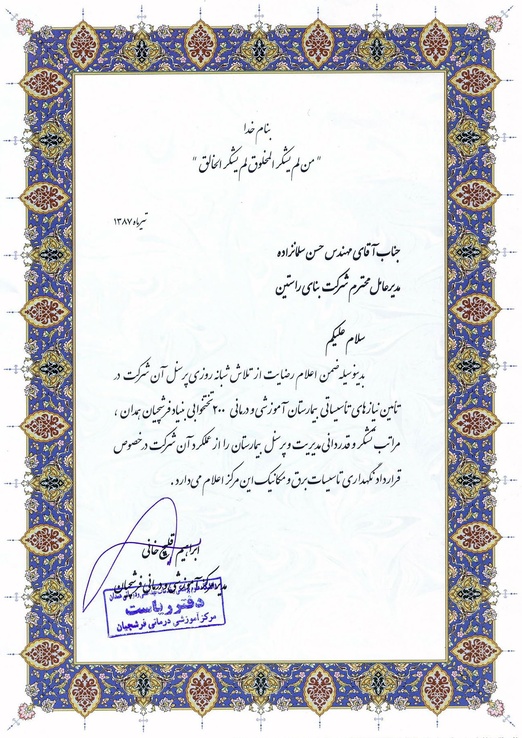 بنام خدا
"من لم یشکر المخلوق لم یشکر الخالق"
تیرماه ۱۳۸۷
جناب آقای مهندس حسن سلمانزاده
مدیرعامل محترم شرکت بنای راستین
سلام علیکم
بدینوسیله ضمن اعلام رضایت از تلاش شبانه روزی پرسنل آن شرکت در
تأمین نیازهای تأسیساتی بیمارستان آموزشی و درمانی ۲۰۰ تختخوابی بنیاد فرشچیان همدان ،
مراتب تشکر و قدردانی مدیریت و پرسنل بیمارستان را از عملکرد آن شرکت در خصوص
قرارداد نگهداری تاسیسات برق و مکانیک این مرکز اعلام می دارد .
ابراهیم قلیچ خانی
مدیر مرکز آموزشی و درمانی فرشچیان
دفتر ریاست
مرکز آموزشی درمانی فرشچیان